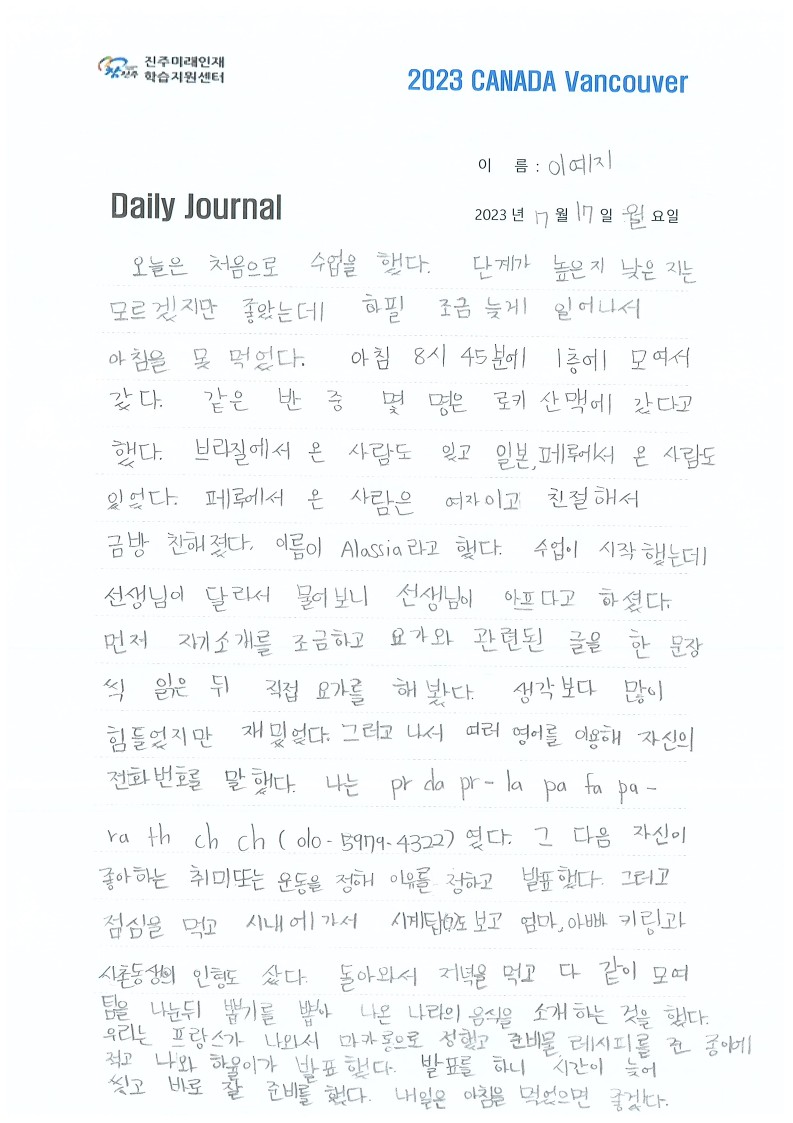 진주미래인재
학습지원센터
2023 CANADA Vancouver
이 름 : 이예지
Daily Journal
2023 년 7 월 17 일 월 요일
오늘은 처음으로 수업을 했다. 단계가 높은지 낮은 지는
모르겠지만 좋았는데 하필 조금 늦게 일어나서
아침을 못 먹었다. 아침 8시 45분에 1층에 모여서
갔다. 같은 반 중 몇 명은 로키 산맥에 갔다고
했다. 브라질에서 온 사람도 있고 일본, 페루에서 온 사람도
있었다. 페루에서 온 사람은 여자이고 친절해서
금방 친해졌다. 이름이 Alassia라고 했다. 수업이 시작했는데
선생님이 달라서 물어보니 선생님이 아프다고 하셨다.
먼저 자기소개를 조금하고 요가와 관련된 글을 한 문장
씩 읽은 뒤 직접 요가를 해 봤다. 생각보다 많이
힘들었지만 재밌었다. 그러고 나서 여러 영어를 이용해 자신의
전화번호를 말했다. 나는 pr da pr- la pa fa pa-
ra th ch ch (010-5979-4322) 였다. 그 다음 자신이
좋아하는 취미또는 운동을 정해 이유를 정하고 발표했다. 그러고
점심을 먹고 시내에 가서 시계탑(?)도 보고 엄마, 아빠 키링과
사촌동생의 인형도 샀다. 돌아와서 저녁을 먹고 다 같이 모여
팀을 나눈뒤 뽑기를 뽑아 나온 나라의 음식을 소개하는 것을 했다.
우리는 프랑스가 나와서 마카롱으로 정했고 준비물 레시피를 쓴 종이에
적고 나와 하율이가 발표했다. 발표를 하니 시간이 늦어
씻고 바로 잘 준비를 했다. 내일은 아침을 먹었으면 좋겠다.